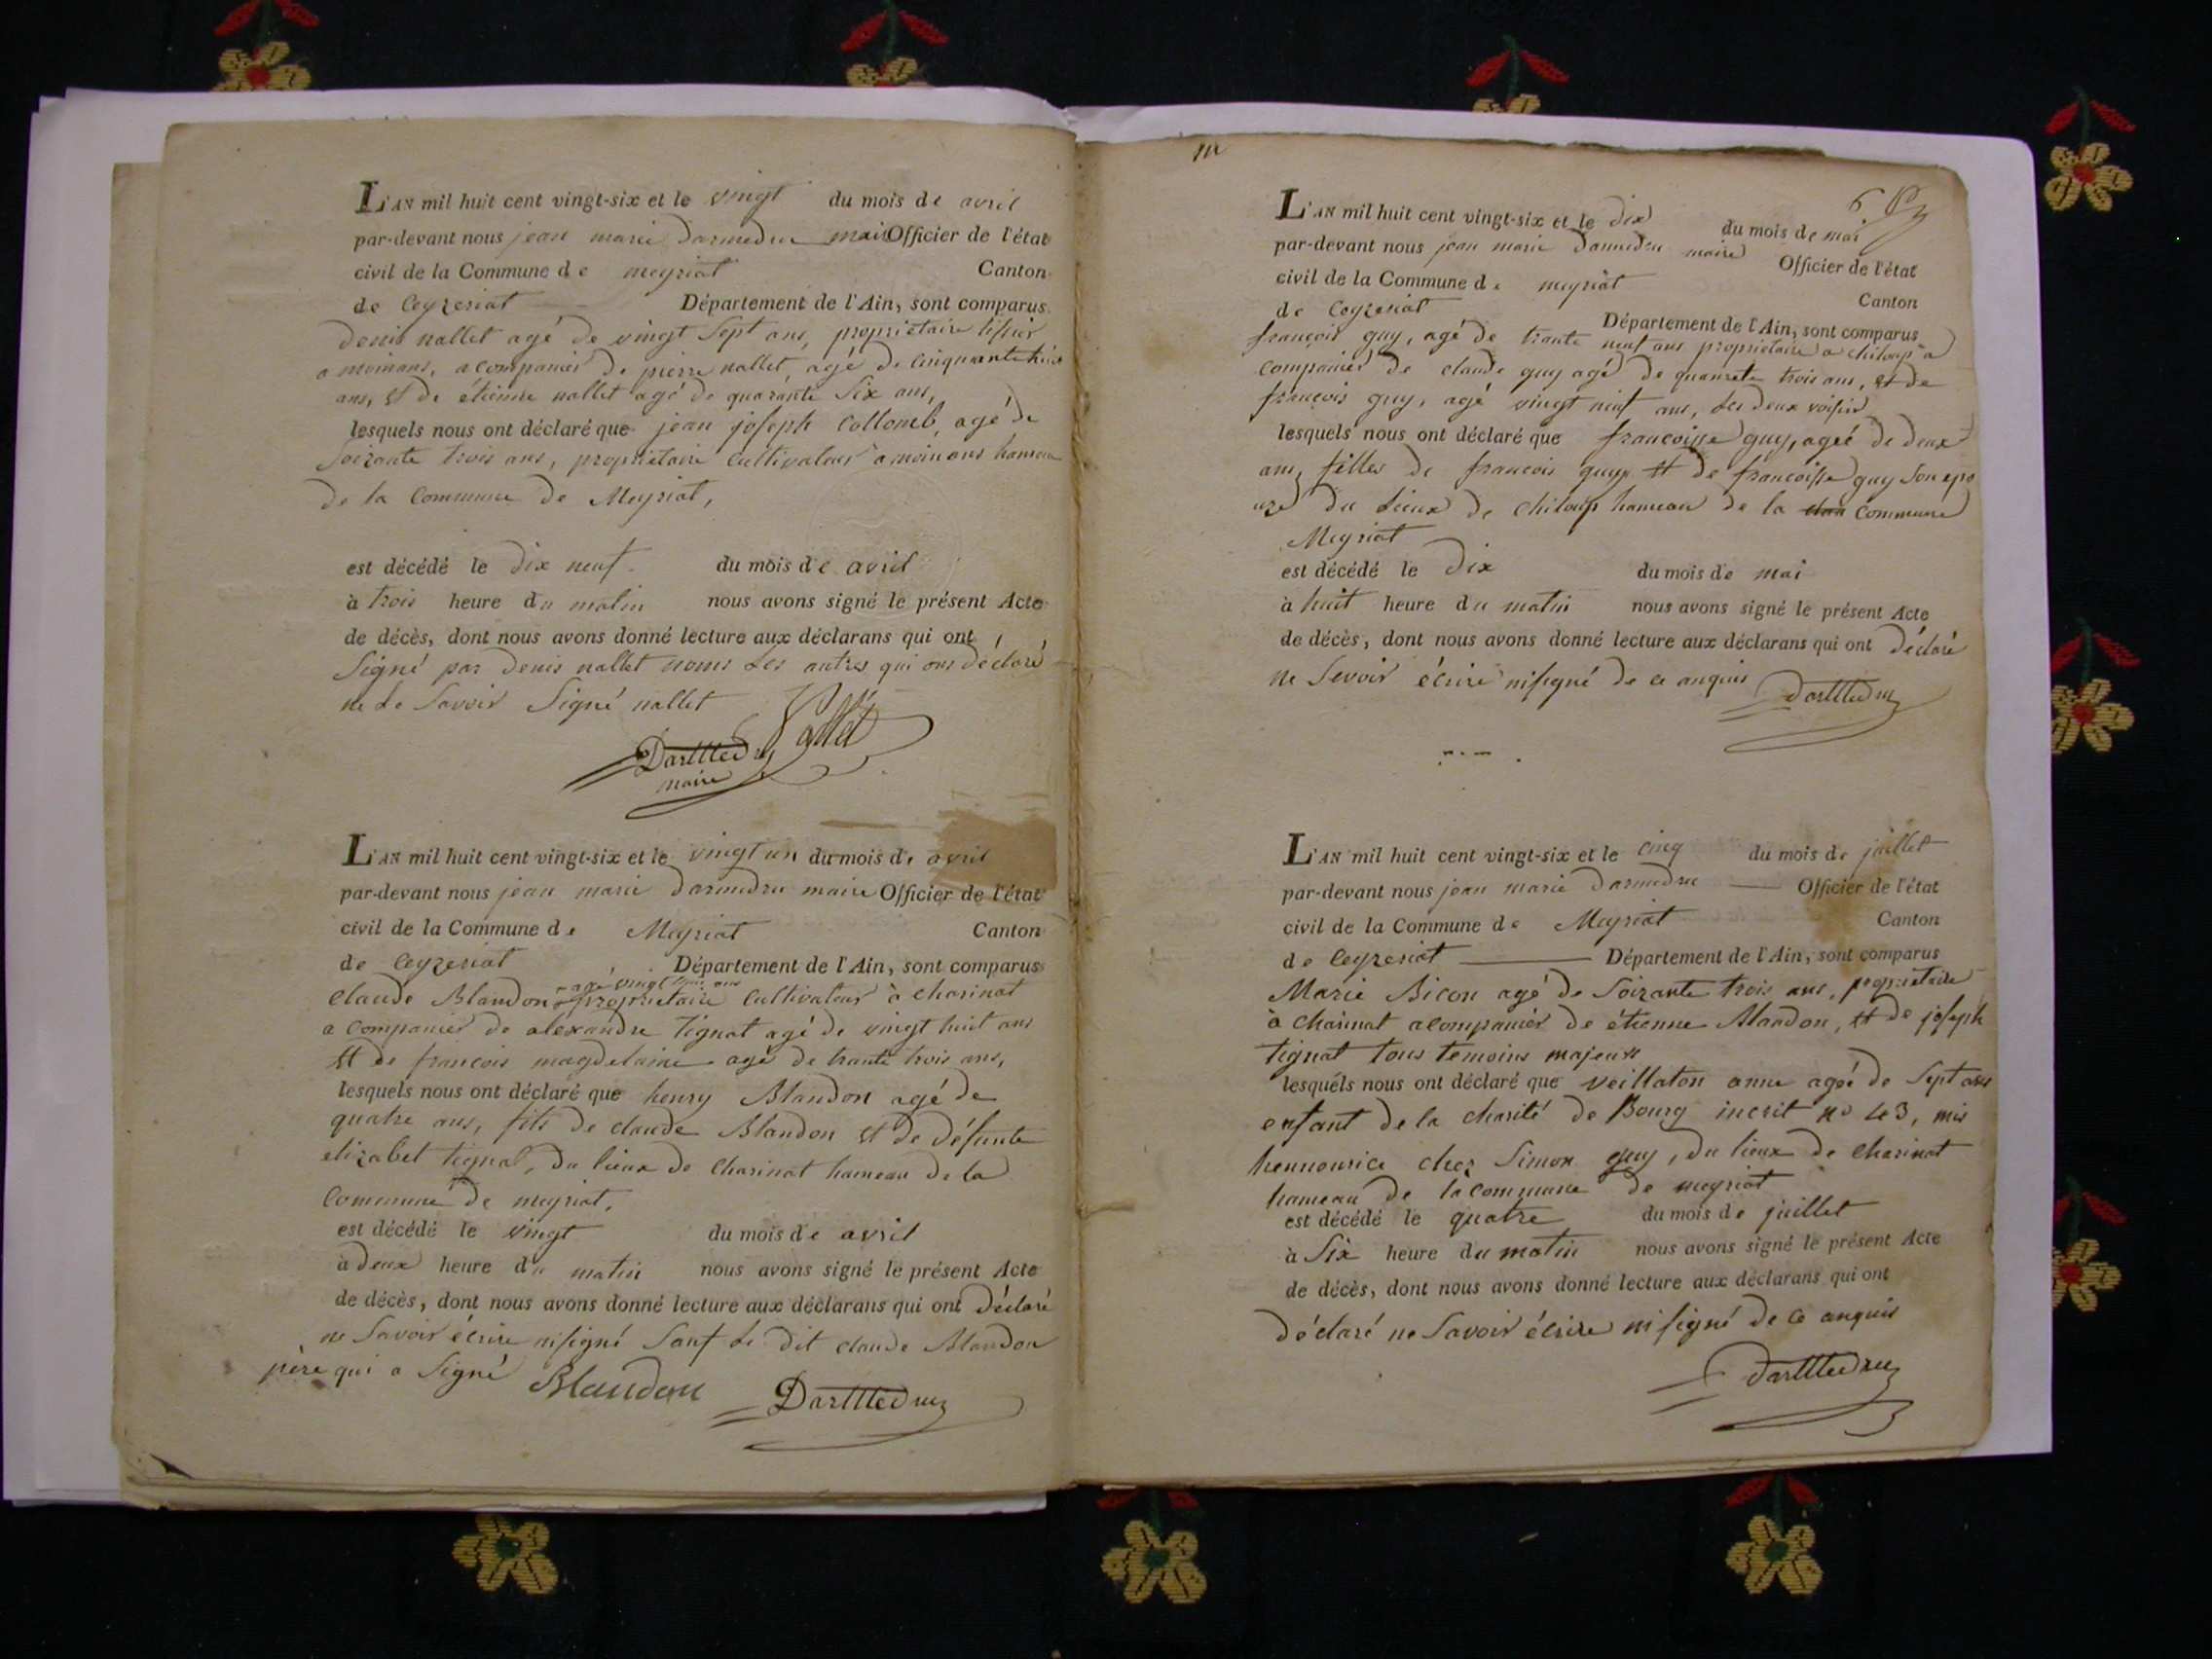 L'AN mil huit cent vingt-six et le vingt du mois de avril
par-devant nous jean marie darmedru maire Officier de l'état
civil de la Commune de meyriat Canton
de Ceyzeriat Département de l'Ain, sont comparus
denis nallet agé de vingt Sept ans, propriétaire
a moinans, acompanier de pierre nallet, agé de cinquante huit
ans, et de étienne nallet agé de quarante Six ans,
lesquels nous ont déclaré que jean joseph Collomb, agé de
Soizante trois ans, propriétaire Cultivateur a moinans hameau
de la Commune de Meyriat,
est décédé le dix neuf du mois de avril
à trois heure du matin nous avons signé le présent Acte
de décès, dont nous avons donné lecture aux déclarans qui ont
Signé par denis nallet nomi Les autres qui ons déclaré
ne Le Savoir Signé nallet
Nallet
Darmedru
maire
L'AN mil huit cent vingt-six et le vingt un du mois de avril
par-devant nous jean marie darmedru maire Officier de l'état
civil de la Commune de Meyriat Canton
de Ceyzeriat Département de l'Ain, sont comparus
agé vingt ans
claude Blandon propriétaire Cultivateur à charinat
a companier de alexandre tignat agé de vingt huit ans
et de francois magdelaine agé de trante trois ans,
lesquels nous ont déclaré que henry Blandon agé de
quatre ans, fils de claude Blandon et de défunte
elizabet tignat, du lieux de Charinat hameau de la
Commune de meyriat,
est décédé le vingt du mois de avril
à deux heure du matin nous avons signé le présent Acte
de décès, dont nous avons donné lecture aux déclarans qui ont déclaré
ne Savoir écrire nisigné Sauf Le dit claude Blandon
père qui a Signé Blandon Darmedru
6
L'AN mil huit cent vingt-six et le dix du mois de mai
par-devant nous jean marie darmedru maire Officier de l'état
civil de la Commune de meyriat Canton
de Ceyzeriat Département de l'Ain, sont comparus
françois guy, agé de trante neuf ans propriétaire a chiloup a
companier de claude guy agé de quanrete trois ans, et de
françois guy, agé vingt neuf ans, Les deux voisin
lesquels nous ont déclaré que francoisse guy, ageé de deux
ans, filles de francois guy et de francoisse guy Son epo
uze du Lieux de chiloup hameau de la Commune
Meyriat
est décédé le dix du mois de mai
à huit heure du matin nous avons signé le présent Acte
de décès, dont nous avons donné lecture aux déclarans qui ont déclaré
ne Sevoir écrire nisigné de ce anquis
Darmedru
L'AN mil huit cent vingt-six et le cinq du mois de juillet
par-devant nous jean marie darmedru Officier de l'état
civil de la Commune de Meyriat Canton
de Ceyzeriat Département de l'Ain, sont comparus
Marie Bicon agé de Soizante trois ans, propriétaire
à Charinat acompanier de étienne Blandon, et de joseph
tignat tous témoins majeurs
lesquels nous ont déclaré que veillaton anne ageé de Sept ans
enfant de la charité de Bourg incrit no 43, mis
hennourice chez Simon guy, du lieux de Charinat
hameau de la commune de meyriat
est décédé le quatre du mois de juillet
à Six heure du matin nous avons signé le présent Acte
de décès, dont nous avons donné lecture aux déclarans qui ont
déclaré ne Savoir écrire ni signé de ce anquis
Darmedru